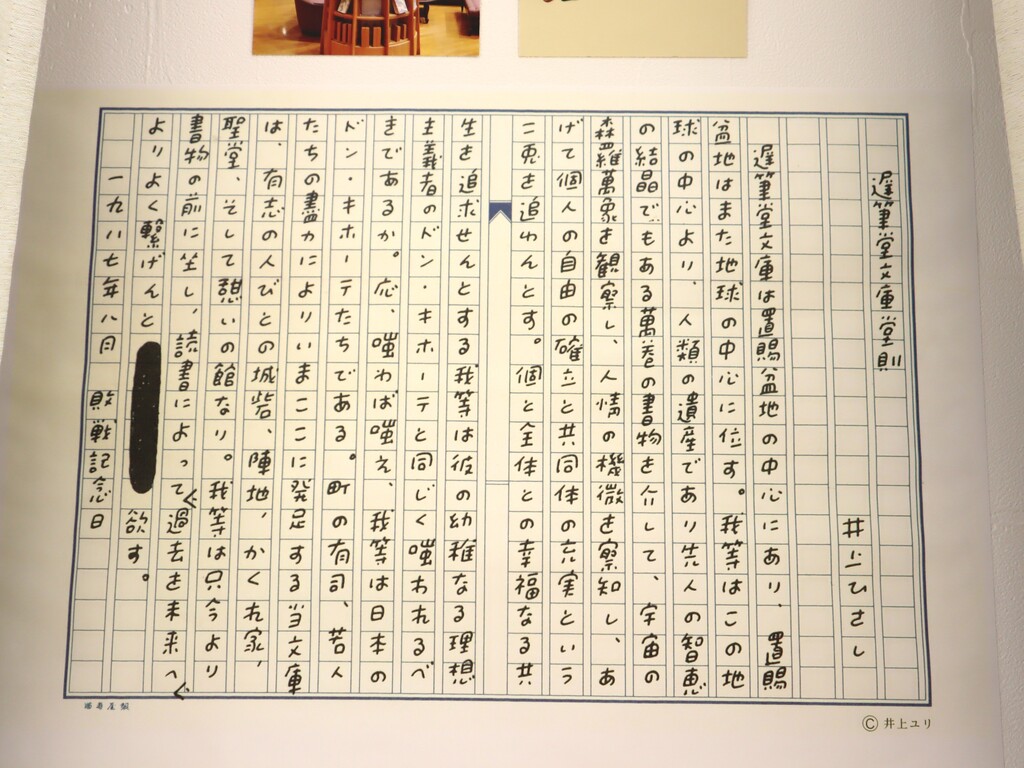 遅筆堂文庫堂則
井上ひさし
遅筆堂文庫は置賜盆地の中心にあり、置賜
盆地はまた地球の中心に位す。我等はこの地
球の中心より、人類の遺産であり先人の智恵
の結晶でもある萬巻の書物を介して、宇宙の
森羅萬象を観察し、人情の機微を察知し、あ
げて個人の自由の確立と共同体の充実という
二兎を追わんとす。個と全体との幸福なる共
生を追求せんとする我等は彼の幼稚なる理想
主義者のドン・キホーテと同じく嗤われるべ
きであるか。応、嗤わば嗤え、我等は日本の
ドン・キホーテたちである。町の有司、若人
たちの盡力によりいまここに発足する当文庫
は、有志の人びとの城砦、陣地、かくれ家、
聖堂、そして憩いの館なり。我等は只今より
書物の前に坐し、読書によって過去を未来へ
よりよく繋げんと欲す。
一九八七年八月 敗戦記念日
© 井上ユリ